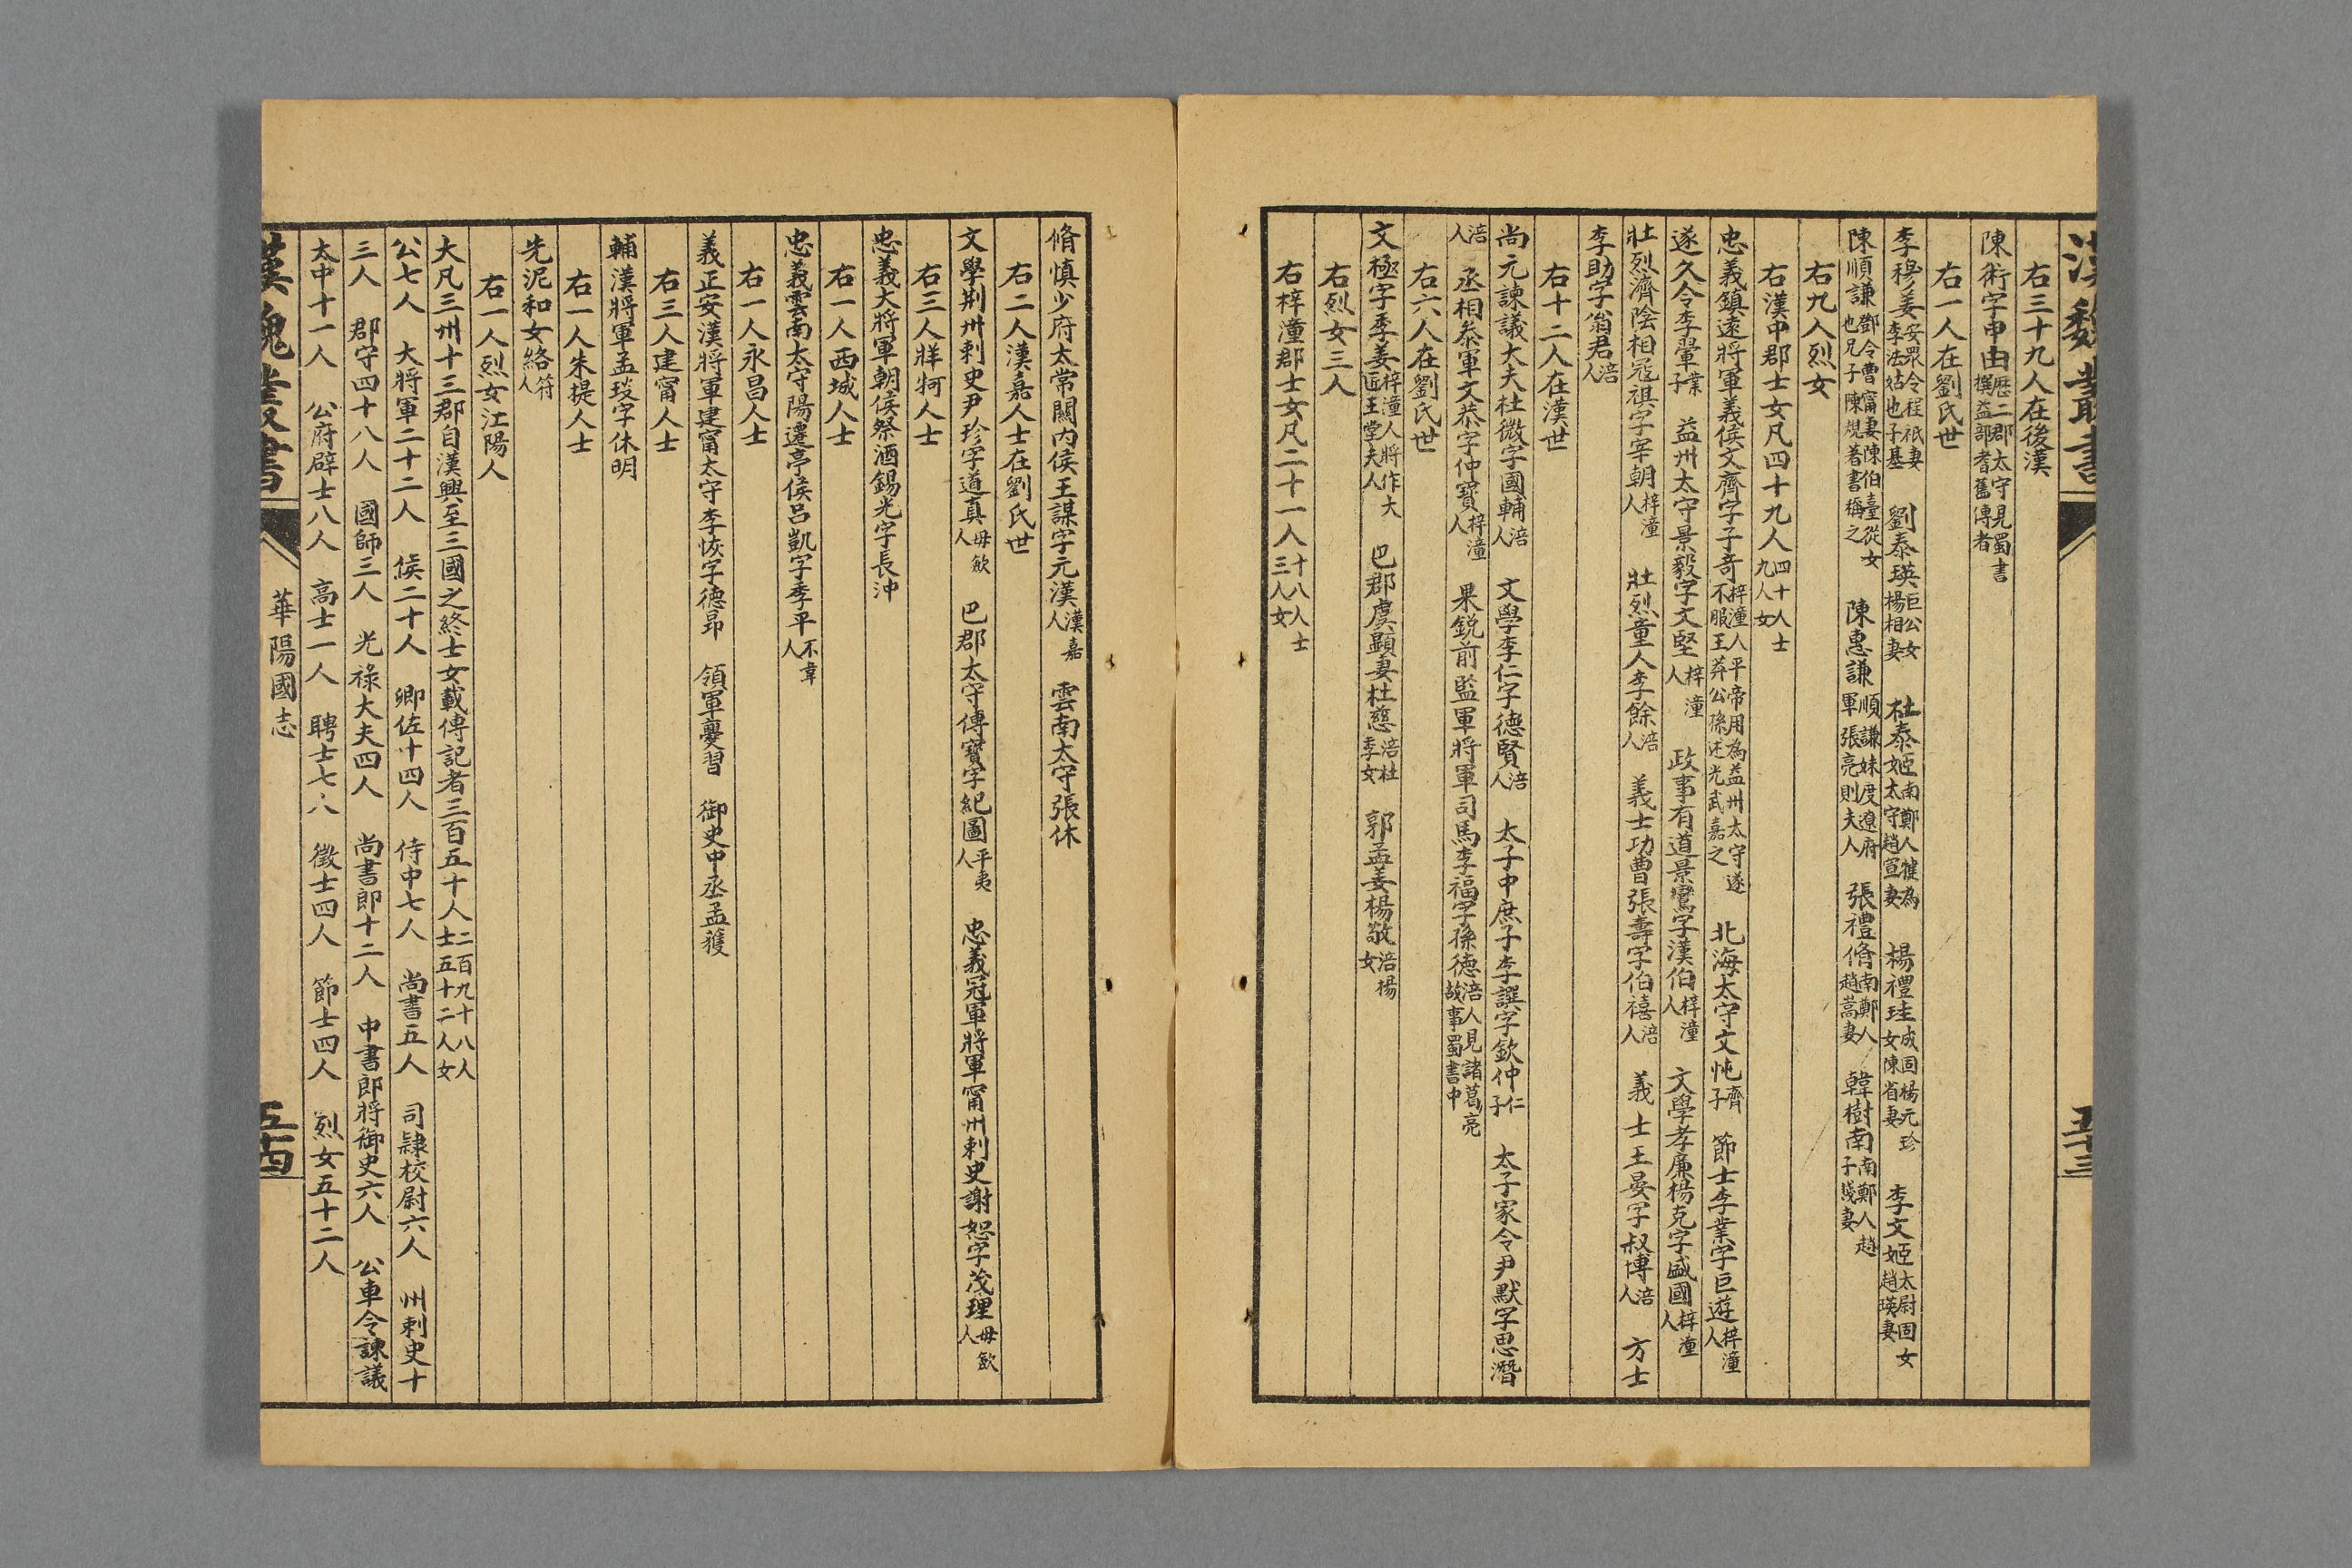 漢魏叢書
五十三
右三十九人在後漢
陳術字申由歷二郡太守見蜀書撰益部耆舊傳者
右一人在劉氏世
李穆姜安眾令程祇妻李法姑也子基 劉泰瑛巨公女楊相妻 杜泰姬南鄭人犍為太守趙宣妻 楊禮珪成固楊元珍女陳省妻 李文姬太尉固女趙瑛妻
陳順謙鄧令曹甯妻陳伯臺從女也兄子陳規著書稱之 陳惠謙順謙妹度遼府軍張亮則夫人 張禮脩南鄭人趙嵩妻 韓樹南南鄭人趙子賤妻
右九人烈女
右漢中郡士女凡四十九人四十人士九人女
忠義鎮遠將軍義侯文齊字子奇梓潼人平帝用為益州太守遂不服王莽公孫述光武嘉之 北海太守文忳齊子 節士李業字巨遊梓潼人
遂久令李翬業子 益州太守景毅字文堅梓潼人 政事有道景鸞字漢伯梓潼人 文學孝廉楊克字盛國梓潼人
壯烈濟陰相寇祺字宰朝梓潼人 壯烈童人李餘涪人 義士功曹張壽字伯禧涪人 義士王晏字叔博涪人 方士
李助字翁君涪人
右十二人在漢世
尚元諫議大夫杜微字國輔涪人 文學李仁字德賢涪人 太子中庶子李譔字欽仲仁子 太子家令尹默字思潛
涪人 丞相叅軍文恭字仲寶梓潼人 果銳前監軍將軍司馬李福字孫德涪人見諸葛亮故事蜀書中
右六人在劉氏世
文極字季姜梓潼人將作大匠王堂夫人 巴郡虞顯妻杜慈涪杜季女 郭孟姜楊敬涪楊女
右烈女三人
右梓潼郡士女凡二十一人十八人士三人女
脩慎少府太常關內侯王謀字元漢漢嘉人 雲南太守張休
右二人漢嘉人士在劉氏世
文學荆州刺史尹珍字道真毋歛人 巴郡太守傅寶字紀圖平夷人 忠義冠軍將軍甯州刺史謝恕字茂理毋歛人
右三人牂牁人士
忠義大將軍朝侯祭酒錫光字長沖
右一人西城人士
忠義雲南太守陽遷亭侯呂凱字季平不韋人
右一人永昌人士
義正安漢將軍建甯太守李恢字德昂 領軍爨習 御史中丞孟獲
右三人建甯人士
輔漢將軍孟琰字休明
右一人朱提人士
先泥和女絡符人
右一人烈女江陽人
大凡三州十三郡自漢興至三國之終士女載傳記者三百五十人二百九十八人士五十二人女
公七人 大將軍二十二人 侯二十人 卿佐十四人 侍中七人 尚書五人 司隸校尉六人 州刺史十
三人 郡守四十八人 國師三人 光祿大夫四人 尚書郎十二人 中書郎將御史六人 公車令諫議
太中十一人 公府辟士八人 高士一人 聘士七人 徵士四人 節士四人 烈女五十二人
漢魏叢書
華陽國志
五十四